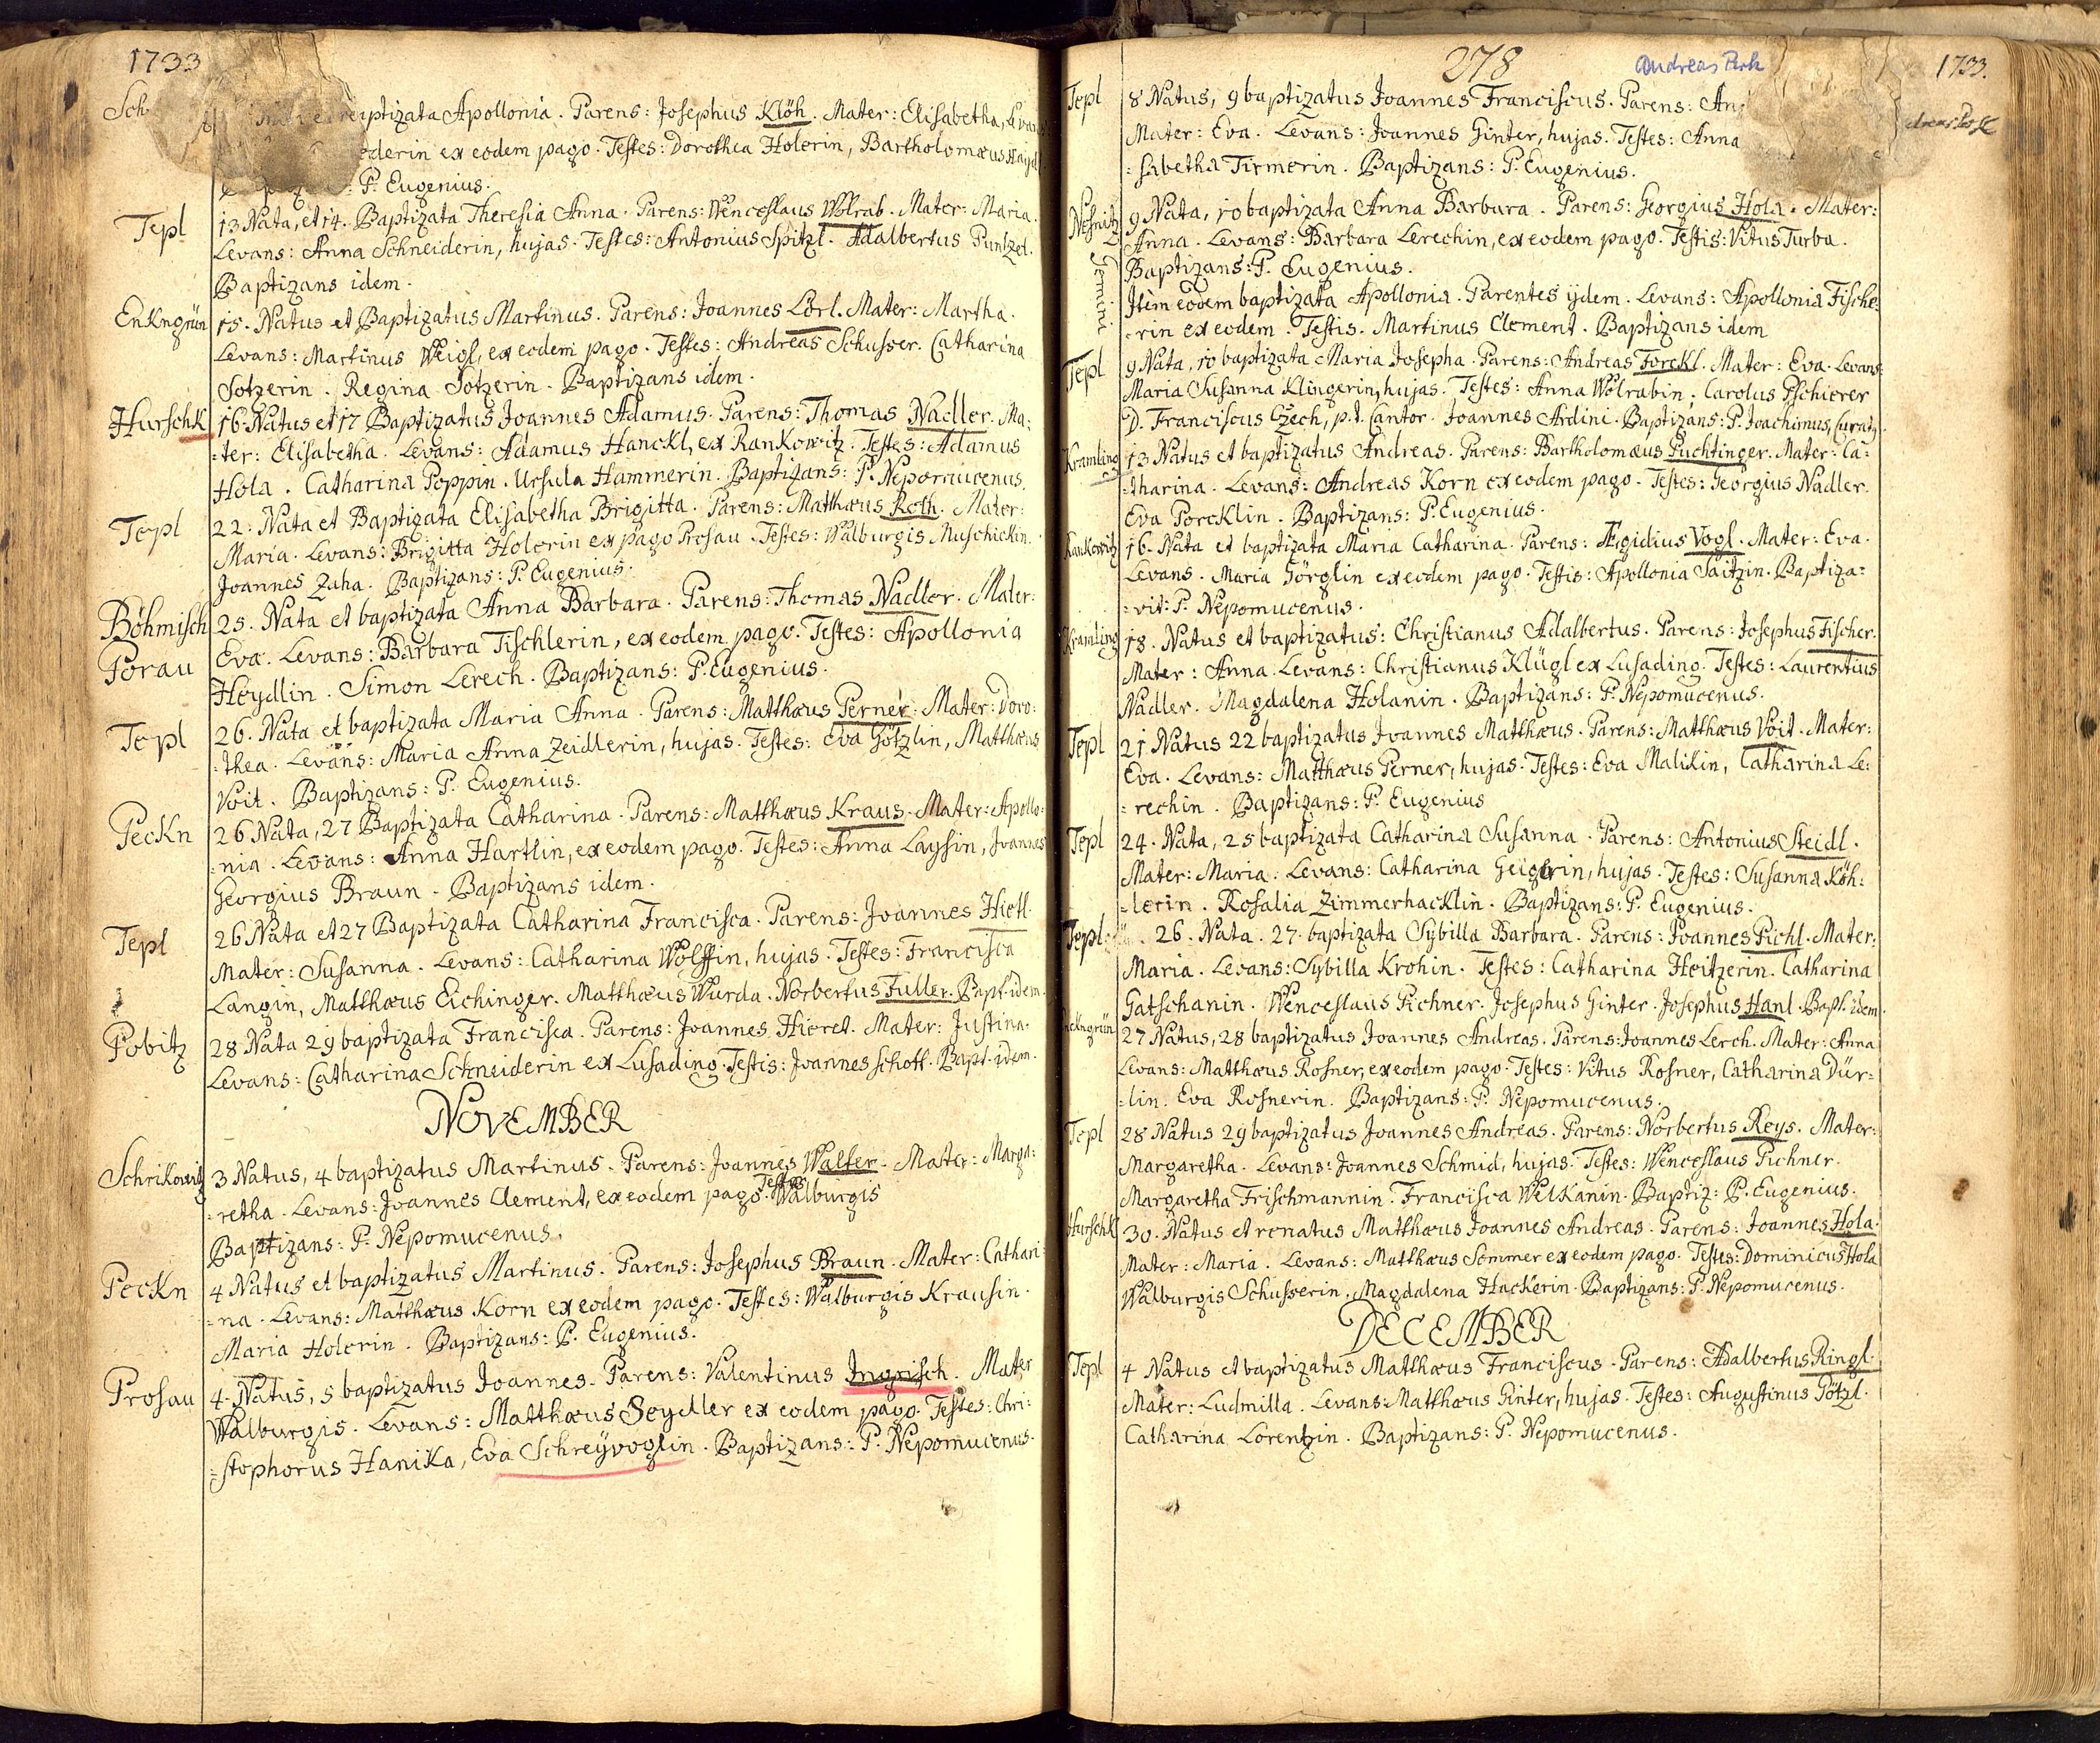 1733
Sch
baptizata Apollonia. Parens: Josephus Klöh. Mater: Elisabetha, Levans
derin ex eodem pago. Testes: Dorothea Holerin, Bartholomæus
: P. Eugenius.
Tepl 13 Nata, et 14. Baptizata Theresia Anna. Parens: Wenceslaus Wolrab. Mater: Maria.
Levans: Anna Schneiderin, hujas. Testes: Antonius Spitzl. Adalbertus Puntzel.
Baptizans idem.
Enkngrün 15. Natus et Baptizatus Martinus. Parens: Joannes Lörl. Mater: Martha.
Levans: Martinus Weigl, ex eodem pago. Testes: Andreas Schusser. Catharina
Sotzerin. Regina Sotzerin. Baptizans idem.
Hurschk 16. Natus et 17 Baptizatus Joannes Adamus. Parens: Thomas Nadler. Ma:
:ter: Elisabetha. Levans: Adamus Hanckl, ex Rankowitz. Testes: Adamus
Hola. Catharina Poppin. Ursula Hammerin. Baptizans: P. Nepomucenus.
Tepl 22. Nata et Baptizata Elisabetha Brigitta. Parens: Matthæus Roth. Mater:
Maria. Levans: Brigitta Holerin ex pago Prosau. Testes: Walburgis Muschickin.
Joannes Zaha. Baptizans: P. Eugenius.
Böhmisch 25. Nata et baptizata Anna Barbara. Parens: Thomas Nadler. Mater:
Porau Eva. Levans: Barbara Tischlerin, ex eodem pago. Testes: Apollonia
Heydlin. Simon Lerech. Baptizans: P. Eugenius.
Tepl 26. Nata et baptizata Maria Anna. Parens: Matthæus Perner. Mater: Doro:
:thea. Levans: Maria Anna Zeidlerin, hujas. Testes: Eva Götzlin, Matthæus
Voit. Baptizans: P. Eugenius.
Peckn 26 Nata, 27 Baptizata Catharina. Parens: Matthæus Kraus. Mater: Apollo:
:nia. Levans: Anna Hartlin, ex eodem pago. Testes: Anna Laysin, Joannes
Georgius Braun. Baptizans idem.
Tepl 26 Nata et 27 Baptizata Catharina Francisca. Parens: Joannes Hietl.
Mater: Susanna. Levans: Catharina Wolffin, hujas. Testes: Francisca
Langin, Matthæus Eichinger. Matthæus Wurda. Norbertus Fuller. Bapt. idem.
Pobitz 28 Nata 29 baptizata Francisca. Parens: Joannes Hieret. Mater: Justina.
Levans: Catharina Schneiderin ex Lusading. Testis: Joannes Schott. Bapt. idem.
NOVEMBER
Schrikowitz 3 Natus, 4 baptizatus Martinus. Parens: Joannes Walter. Mater: Marga:
:retha. Levans: Joannes Clement, ex eodem pago. Testes Walburgis
Baptizans: P. Nepomucenus.
Peckn 4 Natus et baptizatus Martinus. Parens: Josephus Braun. Mater: Cathari:
:na. Levans: Matthæus Korn ex eodem pago. Testes: Walburgis Krausin.
Maria Holerin. Baptizans: P. Eugenius.
Prosau 4. Natus, 5 baptizatus Joannes. Parens: Valentinus Ingrisch. Mater
Walburgis. Levans: Matthæus Seydler ex eodem pago. Testes: Chri:
:stophorus Hanika, Eva Schreÿvoglin. Baptizans: P. Nepomucenus.
278 Andreas 1733.
Tepl 8 Natus, 9 baptizatus Joannes Franciscus. Parens: An
Mater: Eva. Levans: Joannes Ginter, hujas. Testes: Anna
:sabetha Tirmerin. Baptizans: P. Eugenius.
Nesnitz 9 Nata, 10 baptizata Anna Barbara. Parens: Georgius Hola. Mater:
Anna. Levans: Barbara Lerechin, ex eodem pago. Testis: Vitus Turba.
Baptizans: P. Eugenius.
Gemini Item eodem baptizata Apollonia. Parentes ijdem. Levans: Apollonia Fische:
:rin ex eodem. Testis. Martinus Clement. Baptizans idem
Tepl 9 Nata, 10 baptizata Maria Josepha. Parens: Andreas Forckl. Mater: Eva. Levans:
Maria Susanna Klingerin, hujas. Testes: Anna Wolrabin. Carolus Pschierer
D. Franciscus Czech, p.t. Cantor. Joannes Ardini. Baptizans: P. Joachimus, Curat,
Kramling 13 Natus et baptizatus Andreas. Parens: Bartholomæus Puchtinger. Mater: Ca:
:tharina. Levans: Andreas Korn ex eodem pago. Testes: Georgius Nadler.
Eva Porcklin. Baptizans: P. Eugenius.
Rankowitz 16. Nata et baptizata Maria Catharina. Parens: Ægidius Vogl. Mater: Eva.
Levans. Maria Görglin ex eodem pago. Testis: Apollonia Saitzin. Baptiza:
:vit: P. Nepomucenus.
Kramling 18. Natus et baptizatus: Christianus Adalbertus. Parens: Josephus Fischer.
Mater: Anna. Levans: Christianus Klügl ex Lusading. Testes: Laurentius
Nadler. Magdalena Holanin. Baptizans: P. Nepomucenus.
Tepl 21 Natus 22 baptizatus Joannes Matthæus. Parens: Matthæus Voit. Mater:
Eva. Levans: Matthæus Perner, hujas. Testes: Eva Malikin, Catharina Le:
:rechin. Baptizans: P. Eugenius
Tepl 24. Nata, 25 baptizata Catharina Susanna. Parens: Antonius Steidl.
Mater: Maria. Levans: Catharina Geigerin, hujas. Testes: Susanna Köh:
:lerin. Rosalia Zimmerhacklin. Baptizans: P. Eugenius.
Tepl 26. Nata. 27. baptizata Sybilla Barbara. Parens: Joannes Pichl. Mater:
Maria. Levans: Sybilla Krohin. Testes: Catharina Heitzerin. Catharina
Gatschanin. Wenceslaus Pichner. Josephus Ginter. Josephus Hanl. Bapt. idem.
27 Natus, 28 baptizatus Joannes Andreas. Parens: Joannes Lerch. Mater: Anna
Levans: Matthæus Rosner, ex eodem pago. Testes: Vitus Rosner, Catharina Dür:
:lin. Eva Rosnerin. Baptizans: P. Nepomucenus.
Tepl 28 Natus 29 baptizatus Joannes Andreas. Parens: Norbertus Reys. Mater:
Margaretha. Levans: Joannes Schmid, hujas. Testes: Wenceslaus Pichner.
Margaretha Frischmannin. Francisca Welkanin. Baptiz: P. Eugenius.
Hurschk 30. Natus et renatus Matthæus Joannes Andreas. Parens: Joannes Hola.
Mater: Maria. Levans: Matthæus Sommer ex eodem pago. Testes: Dominicus Hola
Walburgis Schusserin, Magdalena Hackerin. Baptizans: P. Nepomucenus.
DECEMBER
Tepl 4 Natus et baptizatus Matthæus Franciscus. Parens: Adalbertus Ringl.
Mater: Ludmilla. Levans: Matthæus Pinter, hujas. Testes: Augustinus Götzl.
Catharina Lorentzin. Baptizans: P. Nepomucenus.